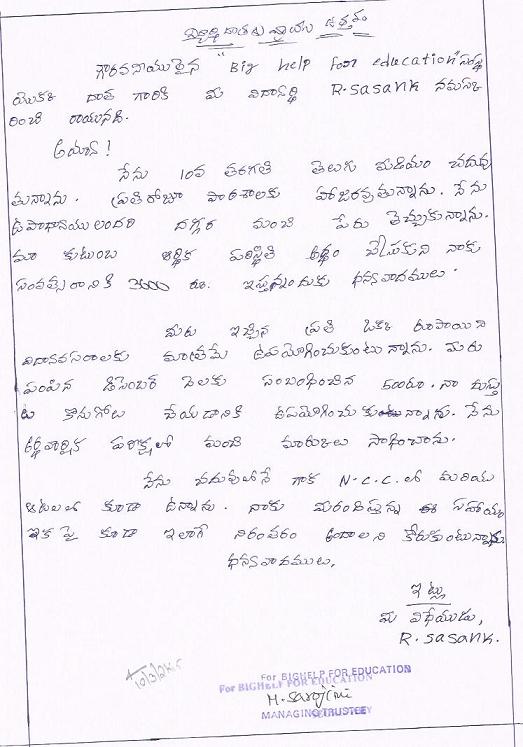 విద్యార్థి దాతకు వ్రాయు ఉత్తరం
గౌరవనీయులైన "Big help for education" సంస్థ
యొక్క దాత గారికి మీ విద్యార్థి R.sasank నమస్క
రించి రాయునది.
అయ్యా!
నేను 10వ తరగతి తెలుగు మీడియం చదువు
తున్నాను. ప్రతిరోజూ పాఠశాలకు హాజరవుతున్నాను. నేను
ఉపాధ్యాయులందరి దగ్గర మంచి పేరు తెచ్చుకున్నాను.
మా కుటుంబ ఆర్థిక పరిస్థితి అర్థం చేసుకుని నాకు
సంవత్సరానికి 3600 రూ. ఇస్తున్నందుకు ధన్యవాదములు.
మీరు ఇచ్చిన ప్రతి ఒక్క రూపాయిని
విద్యావసరాలకు మాత్రమే ఉపయోగించుకుంటున్నాను. మీరు
పంపిన డిసెంబర్ నెలకు సంబంధించిన 500రూ. నా
కొనుగోటు చేయడానికి ఉపయోగించుకుంటున్నాను. నేను
అర్థవార్షిక పరీక్షలో మంచి మార్కులు సాధించాను.
నేను చదువులోనే గాక N.C.C.లో మరియు
ఆటలలో కూడా ఉన్నాను. నాకు మీరందిస్తున్న ఈ సహాయం
ఇక పై కూడా ఇలాగే నిరంతరం ఉండాలని కోరుకుంటున్నాను
ధన్యవాదములు.
ఇట్లు
మీ విధేయుడు,
R.sasank.
For BIGHELP FOR EDUCATION
For BIGHELP FOR EDUCATION
M.Sarojini
MANAGING TRUSTEE